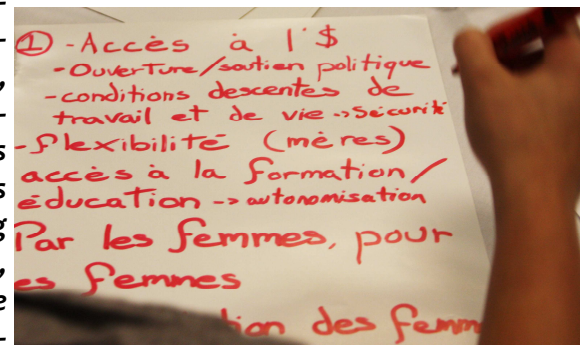 ① - Accès à l'$
- Ouverture/soutien politique
- conditions descentes de
travail et de vie -> Sécurité
- flexibilité (mères)
accès à la formation/
éducation -> autonomisation
Par les femmes, pour
es femmes
ion des femm